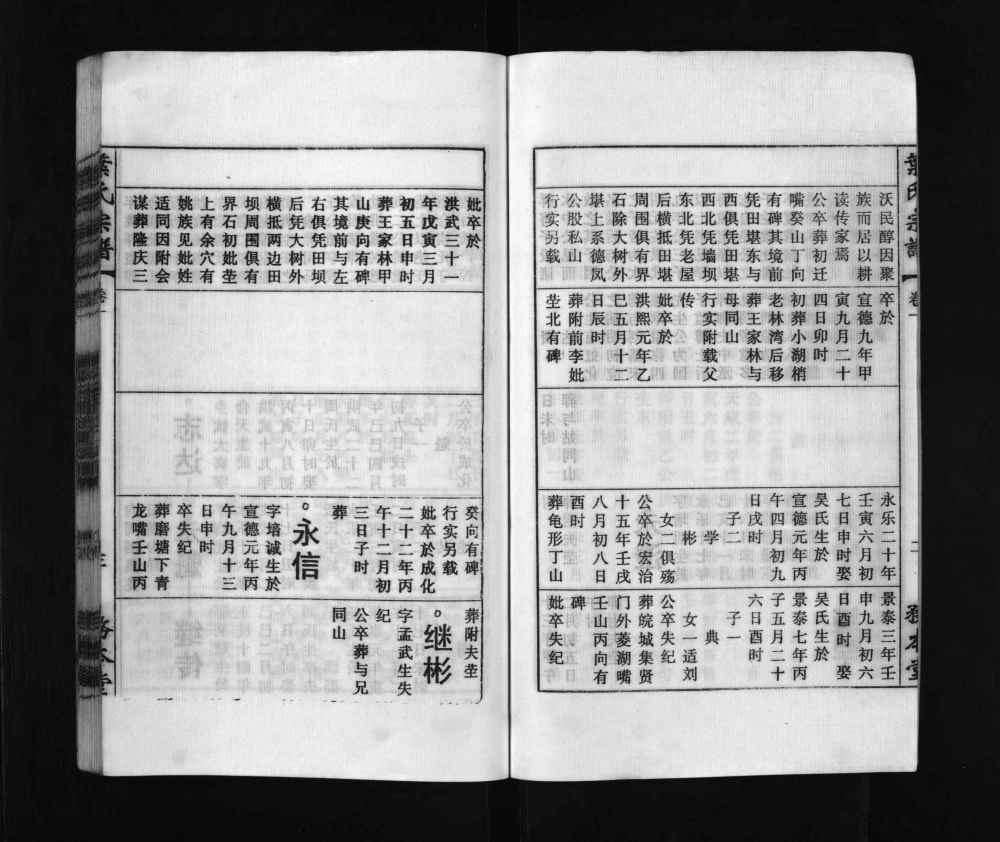 葉氏宗譜
卷一
務本堂
沃民醇因聚
族而居以耕
读传家焉
公卒葬初迁
嘴癸山丁向
有碑其境前
凭田堪东与
西俱凭田堪
西北凭墙坝
东北凭老屋
后横抵田堪
周围俱有界
石除大树外
堪上系德凤
公股私山
行实另载
卒於
宣德九年甲
寅九月二十
四日卯时
初葬小湖梢
老林湾后移
葬王家林与
母同山
行实附载父
传
妣卒於
洪熙元年乙
巳五月十二
日辰时
葬附前李妣
茔北有碑
永乐二十年
壬寅六月初
七日申时娶
吴氏生於
宣德元年丙
午四月初九
日戌时
子二
学
彬
女二俱殇
公卒於宏治
十五年壬戌
八月初八日
酉时
葬龟形丁山
景泰三年壬
申九月初六
日酉时娶
吴氏生於
景泰七年丙
子五月二十
六日酉时
子一
典
女一适刘
公卒失纪
葬皖城集贤
门外菱湖嘴
壬山丙向有
碑
妣卒失纪
妣卒於
洪武三十一
年戊寅三月
初五日申时
葬王家林甲
山庚向有碑
其境前与左
右俱凭田坝
后凭大树外
横抵两边田
坝周围俱有
界石初妣茔
上有余穴有
姚族见妣姓
适同因附会
谋葬隆庆三
癸向有碑
行实另载
妣卒於成化
二十二年丙
午十二月初
三日子时
葬
永信
字培诚生於
宣德元年丙
午九月十三
日申时
卒失纪
葬磨塘下青
龙嘴壬山丙
葬附夫茔
继彬
字孟武生失
纪
公卒葬与兄
同山
葉氏宗譜
卷一
務本堂